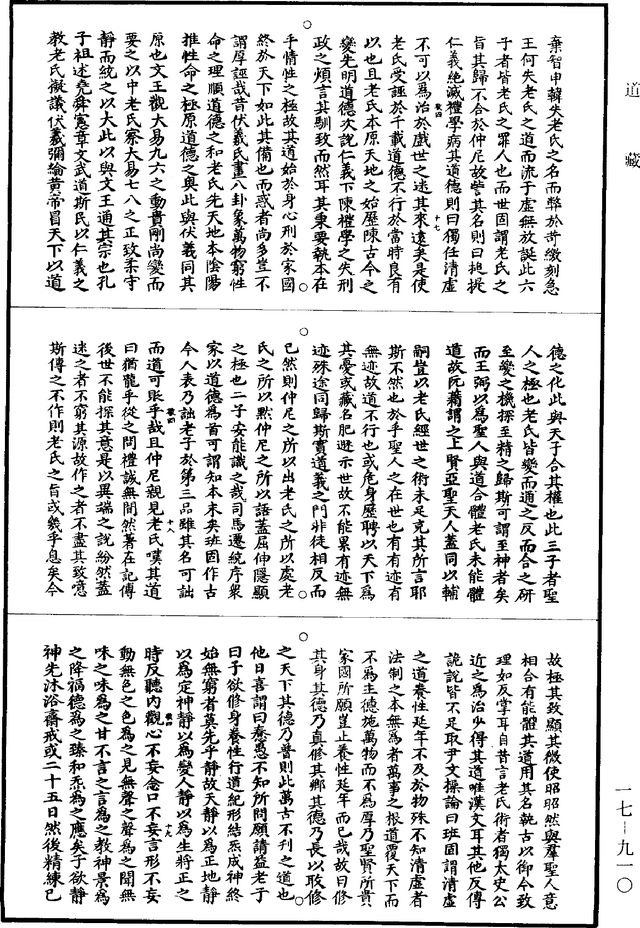 道藏
棄智申韓失老氏之名而弊於苛繳刻急
王何失老氏之道而流于虛無放誕此六
子者皆老氏之罪人也而世固謂老氏之
旨其歸不合於仲尼故訾其名則曰搥提
仁義絕滅禮學病其道德則曰獨任清虛
不可以爲治於戲世之迷其來遠矣是使
老氏受誣於千載道德不行於當時良有
以也且老氏本原天地之始歷陳古今之
變先明道德次說仁義下陳禮學之失刑
政之煩言其馴致而然耳其秉要執本在
乎情性之極故其道始於身心刑於家國
終於天下如此其備也而惑者尚多豈不
謂厚誣哉昔伏羲氏畫八卦象萬物窮性
命之理順道德之和老氏先天地本陰陽
推性命之極原道德之奧此與伏羲同其
原也文王觀大易九六之動貴剛尚變而
要之以中老氏察大易七八之正致柔守
靜而統之以大此以與文王通其宗也孔
子祖述堯舜憲章文武道斯民以仁義之
教老氏擬議伏羲彌綸黄帝冒天下以道
德之化此與天子合其權也此三子者聖
人之極也老氏皆變而通之反而合之研
至變之機探至精之歸斯可謂至神者矣
而王弼以爲聖人與道合體老氏未能體
道故阮籍謂之上賢亞聖天人蓋同以輔
嗣豈以老氏經世之術未足克其所言耶
斯不然也於乎聖人之在世也有有迹有
無迹故道不行也或危身歷聘以天下爲
其憂或藏名肥遯示世故不能累有迹無
迹殊途同歸斯實道義之門非徒相反而
已然則仲尼之所以出老氏之所以處老
氏之所以黙仲尼之所以語蓋屈伸隱顯
之極也二子安能識之哉司馬遷統序衆
家以道德爲首可謂知本末矣班固作古
今人表乃詘老子於第三品雖其名可詘
而道可貶乎哉且仲尼親見老氏嘆其道
曰猶龍乎從之問禮誠無間然著在記傳
後世不能探其意是以異端之說紛然蓋
迷之者不窮其源故作之者不盡其致噫
斯傳之不作則老氏之旨或幾乎息矣今
故極其致顯其微使昭昭然與羣聖人意
相合有能體其道用其名執古以御今致
理如反掌耳自昔言老氏術者獨太史公
近之爲治少得其道唯漢文耳其他反傳
詭說皆不足取尹文操論曰班固謂清虛
之道養性延年不及於物殊不知清虛者
法制之本無爲者萬事之根道覆天下而
不爲主德施萬物而不爲厚乃聖賢所貴
家國所願豈止養性延年而已哉故曰修
其身其德乃真修其鄉其德乃長以取修
之天下其德乃普則此萬古不刊之道也
他日喜謂曰喜愚不知所問願請益老子
曰子欲修身養性行道紀形結炁成神終
始無窮者莫先乎靜故天靜以爲正地靜
以爲定神靜以爲變人靜以爲生將正之
時反聽內觀心不妄念口不妄言形不妄
動無色之色爲之見無聲之聲爲之聞無
味之味爲之甘不言之言爲之教神景爲
之降福德爲之臻和炁爲之應矣子欲靜
神先沐浴齋戒或二十五日然後精練已
一七－九一〇